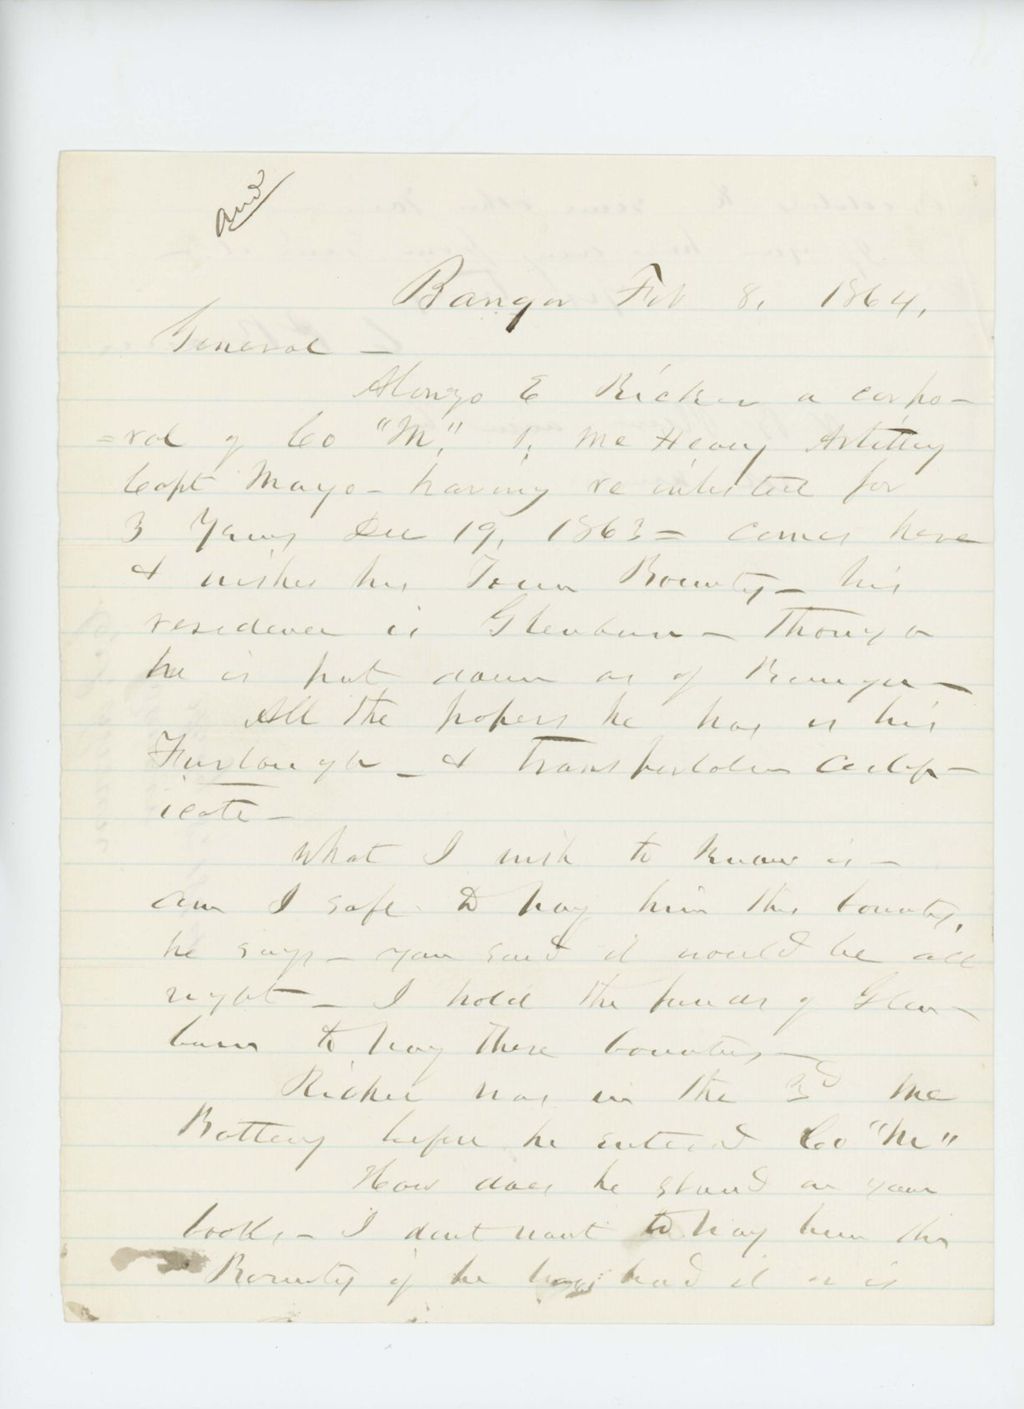 Ansd
Bangor Feb 8, 1864,
General —
Alonzo E Ricker a corpo-
=ral of Co "M", 1, Me Heavy Artillery
Capt Mayo - having re inlisted for
3 Years Dec 19, 1863 = comes here
& wishes his Town Bounty - his
residence is Glenburn - Though
he is put down as of Bangor -
All the papers he has is his
Furlough - & transportation certif-
icate -
What I wish to know is -
am I safe to pay him this bounty,
he says - you said it would be all
right - I hold the funds of Glen-
burn to pay these bounties -
Ricker was in the 3d Me
Battery before he entered Co "M"
How does he stand on your
books, - I dont want to pay him this
Bounty if he has had it or is